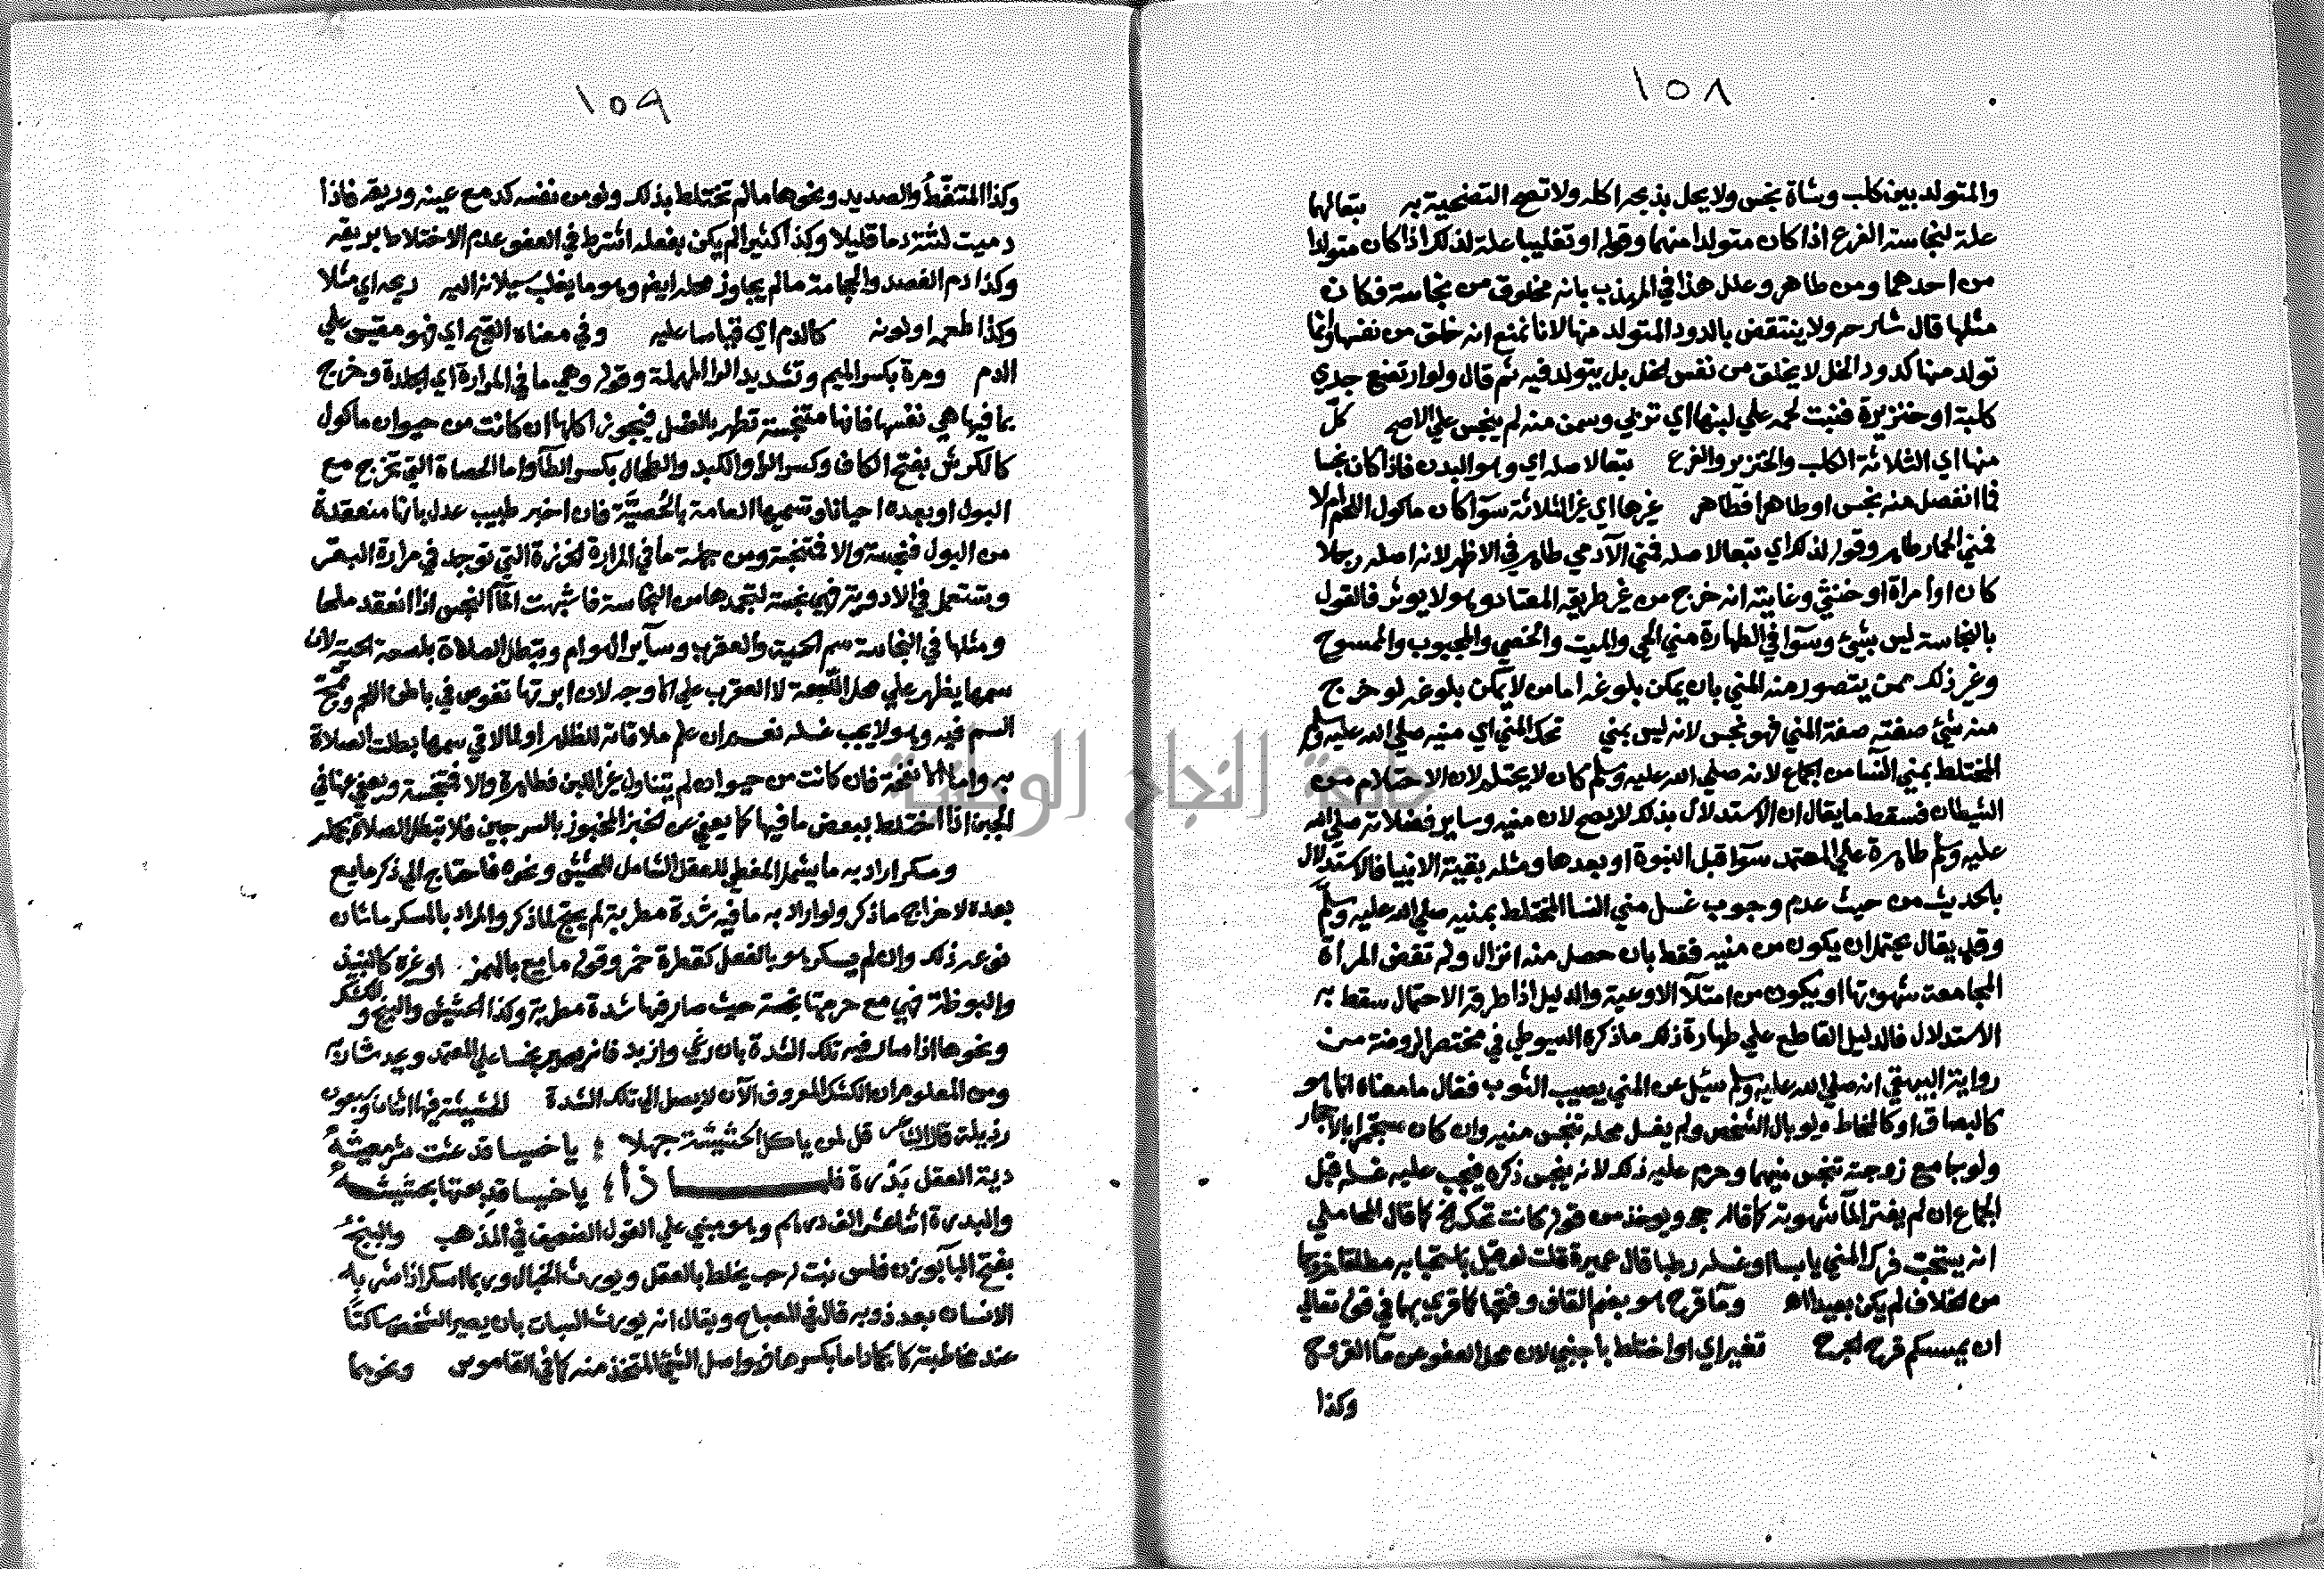 ١٥٨
والمتولد بين كلب وشاة نجس ولا يحل بذبحه اكله ولا تصح التضحية به تبعا لهما
علة لنجاسة الفرع اذا كان متولدا منهما وقوله او تغليبا علة لذلك اذا كان متولدا
من احدهما ومن طاهر وعلل هذا في المهذب بانه مخلوق من نجاسة فكان
مثلها قال شارحه ولا ينتقض بالدود المتولد منها لانا نمنع انه خلق من نفسها وانما
تولد منها كدود الخل لا يخلق من نفس الخل بل يتولد فيه ثم قال ولو ارتضع جدي
كلبة او خنزيرة فنبت لحمه علي لبنها اي تربي وسمن منه لم ينجس علي الاصح كلّ
منها اي الثلاثة الكلب والخنزير والفرع تبعا لاصله اي وهو البدن فاذا كان نجسا
فما انفصل منه نجس او طاهرا فطاهر غيرها اي غير الثلاثة سوآ كان ماكول اللحم ام لا
فمني الحمار طاهر وقوله لذلك اي تبعا لاصله فمني الآدمي طاهر في الاظهر لانه اصله رجلا
كان او امراة او خنثي وغايته انه خرج من غير طريقه المعتاد وهو لا يوثر فالقول
بالنجاسة ليس بشئ وسوآ في الطهارة مني الحي والميت والخصي والمجبوب والممسوح
وغير ذلك ممن يتصور منه المني بان يمكن بلوغه اما من لا يمكن بلوغه لو خرج
منه شئ صفته صفة المني فهو نجس لانه ليس بمني تحك المني اي منيه صلي الله عليه وسلم
المختلط بمني النسآ من اجماع لانه صلي الله عليه وسلم كان لا يحتلم لان الاحتلام من
الشيطان فسقط ما يقال ان الاستدلال بذلك لا يصح لان منيه وساير فضلاته صلي الله
عليه وسلم طاهرة علي المعتمد سوآ قبل النبوة او بعدها ومثله بقية الانبيا فالاستدلال
بالحديث من حيث عدم وجوب غسل مني النسا المختلط بمنيه صلي الله عليه وسلّم
وقد يقال يحتمل ان يكون من منيه فقط بان حصل منه انزال ولم تقض المراة
المجامعة شهوتها او يكون من امتلآ الاوعية والدليل اذا طرقه الاحتمال سقط به
الاستدلال فالدليل القاطع علي طهارة ذلك ما ذكره السيوطي في مختصر الروضة من
رواية البيهقي انه صلي الله عليه وسلم سئل عن المني يصيب الثوب فقال ما معناه انما هو
كالبصاق او كالمخاط ولو بال الشخص ولم يغسل محله تنجس منيه وان كان مستجمرا بالاحجار
ولو جامع زوجته تنجس منيهما وحرم عليه ذلك لانه ينجس ذكره فيجب عليه غسله قبل
الجماع ان لم يفتر المآ شهوته كما قاله حج ويوخذ من قوله كانت تحكه الخ كما قال المحاملي
انه يستحب فرك المني يابسا وغسله رطبا قال عميرة قلت لو قيل باستحبابه مطلقا خروجا
من الخلاف لم يكن بعيدا اهـ ومآ قرح هو بضم القاف وفتحها كما قري بهما في قوله تعالي
ان يمسسكم قرح الجرح تغير اي او اختلط باجنبي لان محل العفو عن مآ القروح
وكذا
١٥٩
وكذا المتنفّط والصديد ونحوها ما لم تختلط بذلك ولو من نفسه كدمع عينه وريقه فاذا
دميت لثته دما قليلا وكذا كثيرا لم يكن بفعله اشترط في العفو عدم الاختلاط بريقه
وكذا دم الفصد والحجامة ما لم يجاوز محله ايضا وهو ما يغلب سيلانه اليه ريحه اي مثلا
وكذا طعمه او لونه كالدم اي قياسا عليه وفي معناه القيح اي فهو مقيس علي
الدم ومرة بكسر الميم وتشديد الرا المهملة وقوله وهي ما في المرارة اي الجلدة وخرج
بما فيها هي نفسها فانها متنجسة تطهر بالغسل فيجوز اكلها ان كانت من حيوان ماكول
كالكرش بفتح الكاف وكسر الرا والكبد والطحال بكسر الطآ واما الحصاة التي تخرج مع
البول او بعده احيانا وتسميها العامة بالحُصيّة فان اخبر طبيب عدل بانها منعقدة
من البول فنجسة والا فمتنجسة ومن جملة ما في المرارة الخرزة التي توجد في مرارة البقر
وتستعمل في الادوية فهي نجسة لتجمدها من النجاسة فاشبهت المآ النجس اذا انعقد ملحا
ومثلها في النجاسة سم الحية والعقرب وسآير الهوام وتبطل الصلاة بلسعة الحية لان
سمها يظهر علي محل اللسعة لا العقرب علي الاوجه لان ابرتها تغوص في باطن اللحم وتمج
السم فيه وهو لا يجب غسله نعم ان علم ملاقاته للظاهر او لما لاقي سمها بطلت الصلاة
به واما الانفحة فان كانت من حيوان لم يتناول غير اللبن فطاهرة والا فمتنجسة ويعفي عنها في
الجبن اذا اختلط ببعض ما فيها كما يعفي عن الخبز المخبوز بالسرجين فلا تبطل الصلاة بحمله
ومسكر اراد به ما يشمل المغطي للعقل الشامل للحشيش ونحوه فاحتاج الي ذكر مايع
بعده لاخراج ما ذكر ولو اراد به ما فيه شدة مطربة لم يحتج لما ذكر والمراد بالمسكر ما شان
نوعه ذلك وان لم يسكر هو بالفعل كقطرة خمر وقوله مايع بالهمز او غيره كالنبيذ
والبوظة فهي مع حرمتها نجسة حيث صار فيها شدة مطربة وكذا الحشيش والبنج والكشك
ونحوها اذا صار فيه تلك الشدة بان رغي وازبد فانه يصير نجسا علي المعتمد ويحد شاربه
ومن المعلوم ان الكشك المعروف الآن لا يصل الي تلك الشدة للحشيشة فيها اثنان وسبعون
رذيلة قال الشاعر قل لمن ياكل الحشيشة جهلا ؛ يا خسيسا قد عشت شر معيشة
دية العقل بَدْرة فلمـــاذا ؛ يا خسيسا قد بعتها بحشيشة
والبدرة اثنا عشر الف درهم وهو مبني علي القول الضعيف في المذهب والبنج
بفتح البآ بوزن فلس نبت له حب يخلط بالعقل ويورث الخبال وربما اسكر اذا شربه
الانسان بعد ذوبه قال في المصباح ويقال انه يورث السبات بان يصير الشخص ساكتا
عند مخاطبته كالجماد اما بكسرها فهو اصل الشئ المتخذ منه كما في القاموس ونحوهما